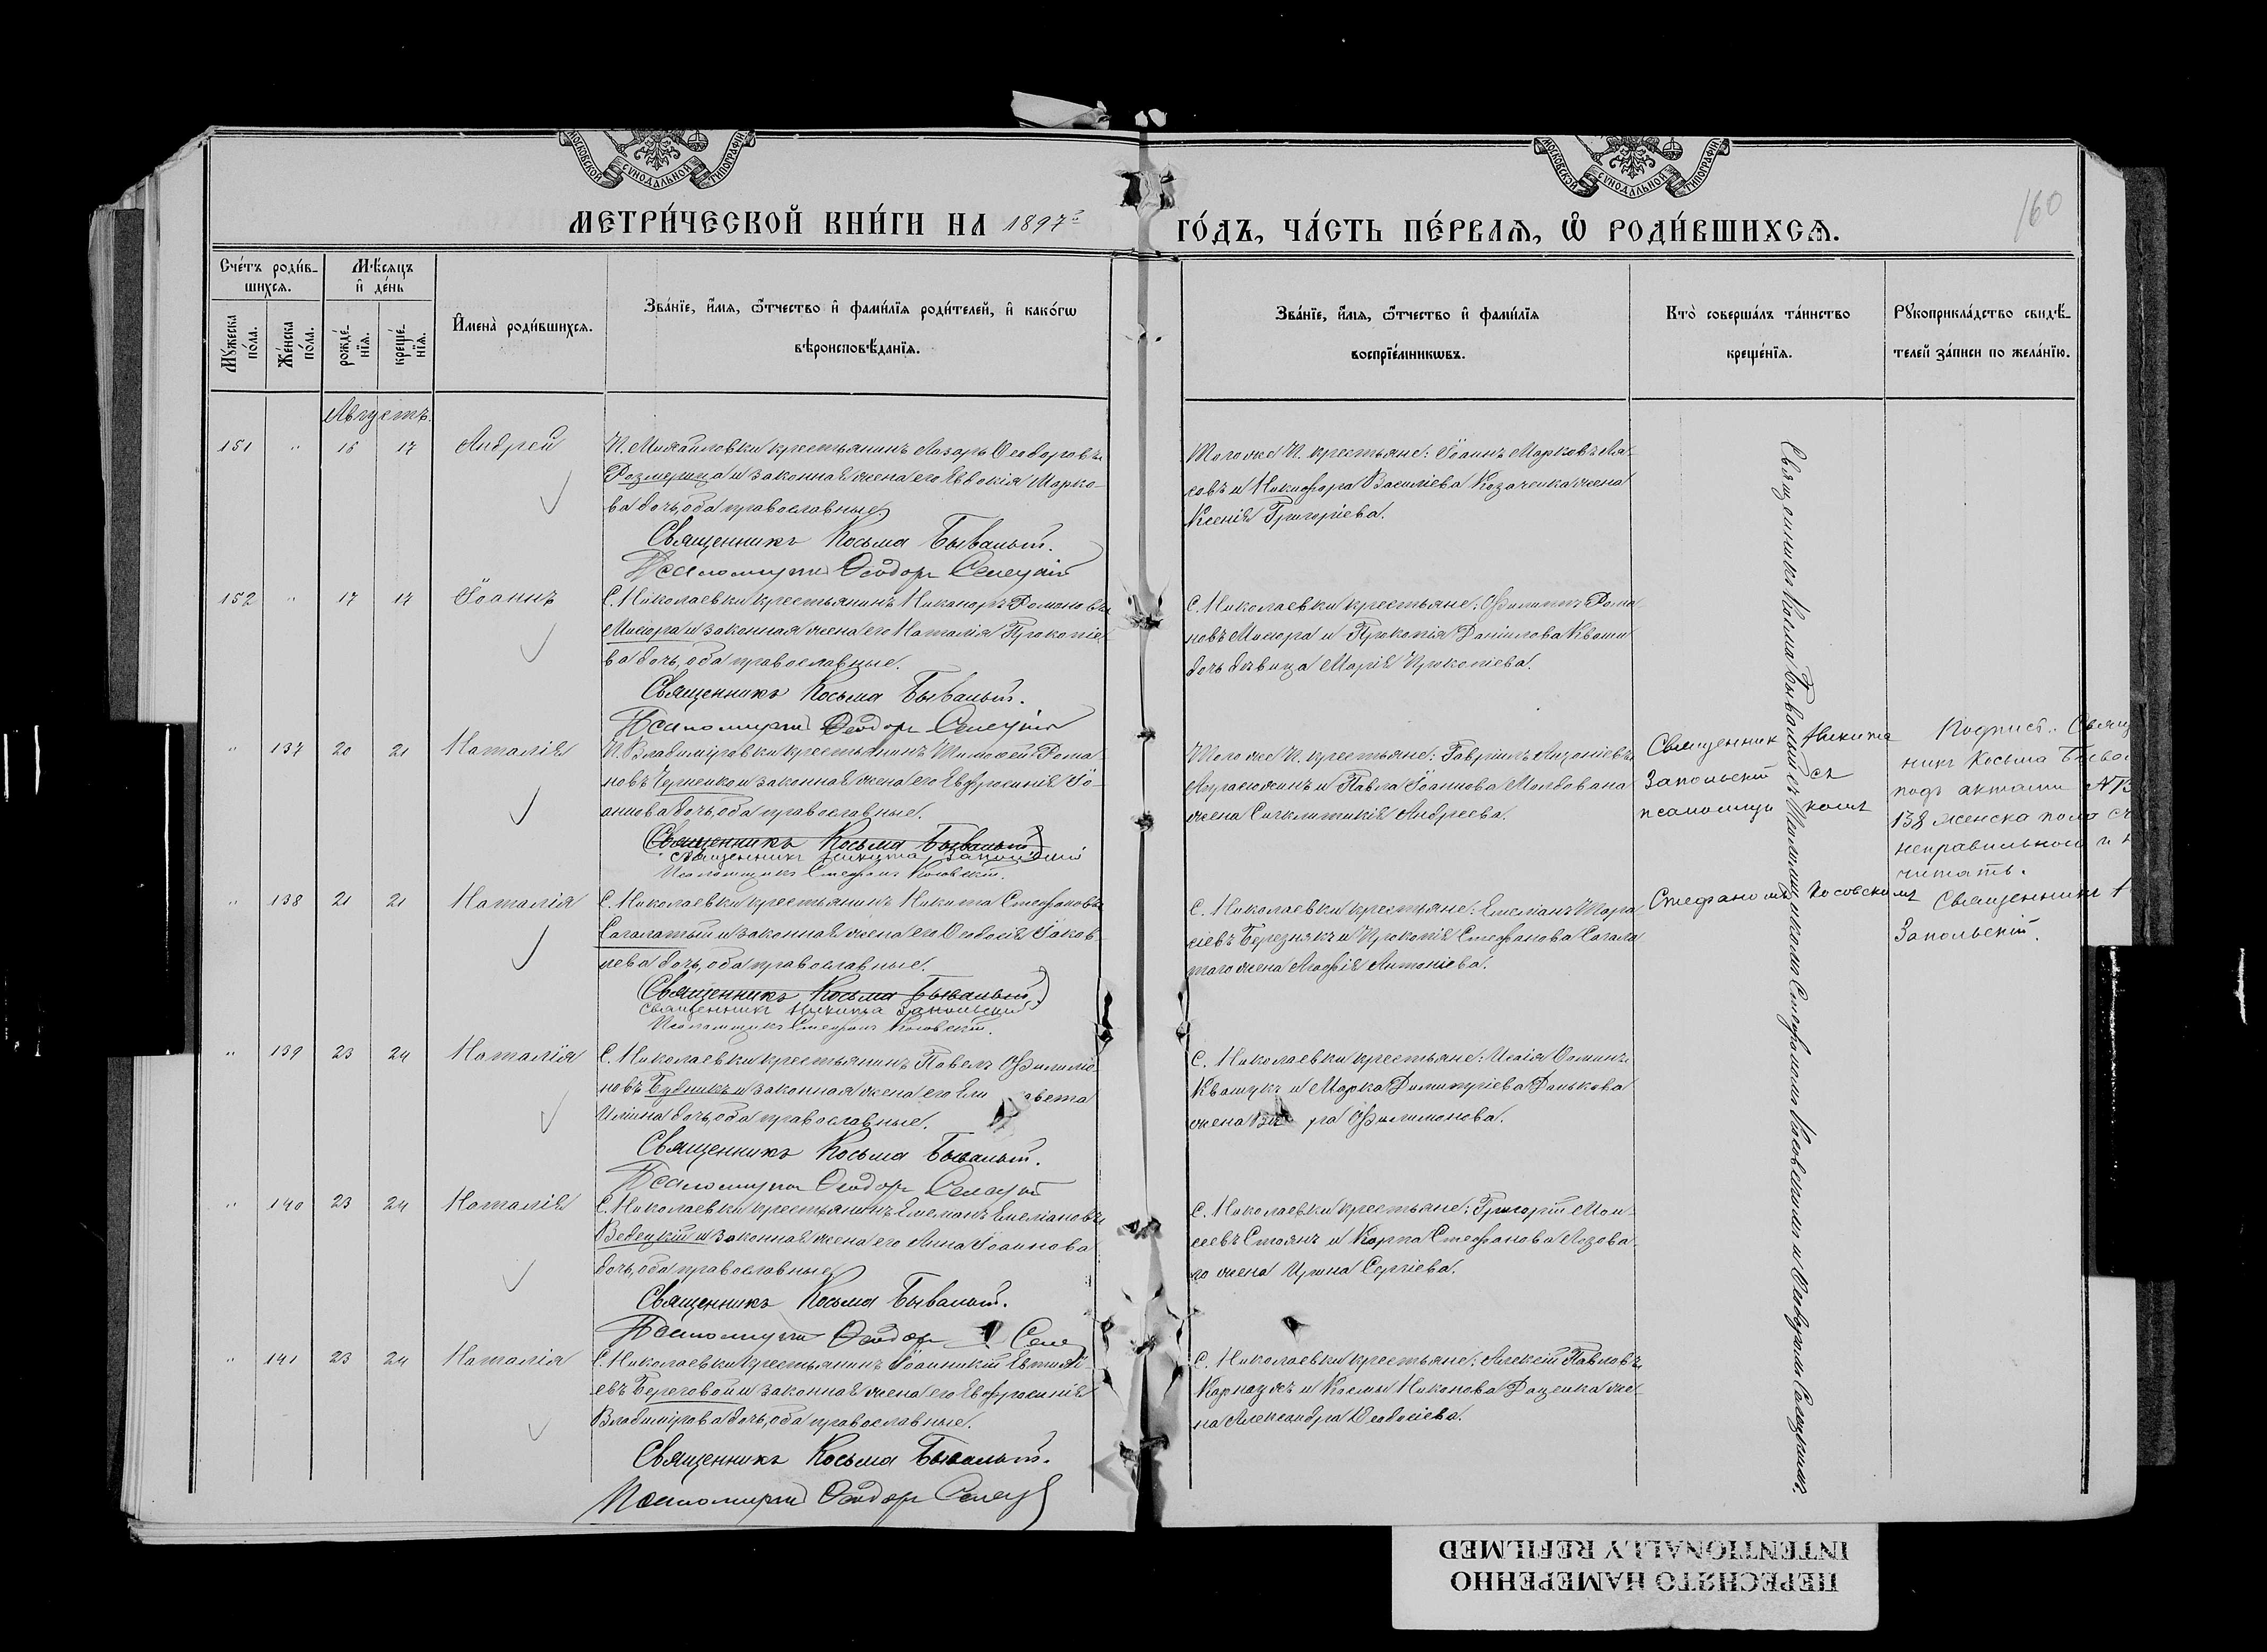 МОСКОВСКОЙ СѴНОДАЛЬНОЙ ТИПОГРАФІИ
МОСКОВСКОЙ СѴНОДАЛЬНОЙ ТИПОГРАФІИ
160
МЕТРИ́ЧЕСКОЙ КНИ́ГИ НА 1897 г
ГО́ДЪ, ЧА́СТЬ ПЕ́РВАѦ, Ѽ РОДИ́ВШИХСѦ.
Сче́тъ роди́в-
шихсѧ.
Мꙋ́жеска по́ла.
Же́нска по́ла.
Мѣ́сѧцъ
и҆ де́нь
рожде́-нїѧ.
креще́-нїѧ.
И҆мена̀ роди́вшихсѧ.
Зва́нїе, и҆́мѧ, ѻ҆́тчество и҆ фами́лїѧ роди́телей, и҆ како́гѡ
вѣроисповѣ́данїѧ.
Зва́нїе, и҆́мѧ, ѻ҆́тчество и҆ фами́лїѧ
воспрїе́мникѡвъ.
Кто̀ соверша́лъ та́инство
креще́нїѧ.
Рꙋкоприкла́дство свидѣ́-
телей за́писи по жела́нїю.
Августъ.
151 " 16 17 Андрей
П. Михайловки крестьянинъ Лазарь Ѳеодоровъ
Розмерица и законная жена его Евдокія Марко-
ва дочь, оба православные.
Священникъ Косьма Бывалый.
Псаломщикъ Ѳеодоръ Селецкій
Того же П. крестьяне: Іоаннъ Марковъ Ла-
совъ и Никифора Василіева Козаченка жена
Ксенія Григоріева.
152 " 17 17 Іоаннъ
С. Николаевки крестьянинъ Никаноръ Романовъ
Мисюра и законная жена его Наталія Прокопіе-
ва дочь, оба православные.
Священникъ Косьма Бывалый.
Псаломщикъ Ѳеодоръ Селецкій
С. Николаевки крестьяне: Филиппъ Рома-
новъ Мисюра и Прокопія Даніилова Кваши
дочь девица Марія Прокопіева.
" 137 20 21 Наталія
П. Владиміровки крестьянинъ Тимоѳей Рома-
новъ Черненко и законная жена его Евфросинія Іо-
аннова дочь, оба православные.
Священникъ Косьма Бывалый
Священникъ Никита Запольскій
Псаломщикъ Стефанъ Косовскій.
Того же П. крестьяне: Гавріилъ
и Павла Іоаннова Молдована
жена Сигклитикія Андреева.
Священник Никита
Запольскій съ
псаломщикомъ
Стефаномъ Косовскимъ
Подпись: Свящ
никъ Косьма Быва
подъ актами №13
138 женска пола сч
неправильной и н
читать.
Священникъ Н
Запольскій.
" 138 21 21 Наталія
С. Николаевки крестьянинъ Никита Стефановъ
Сагалатый и законная жена его Ѳеодосія Іаков-
лева дочь, оба православные.
Священникъ Косьма Бывалый
Священникъ Никита Запольскій
Псаломщикъ Стефанъ Косовскій.
С. Николаевки крестьяне: Емеліанъ Тара-
сіевъ Березнякъ и Прокопія Стефанова Сагала-
таго жена Агафія Антоніева.
" 139 23 24 Наталія
С. Николаевки крестьянинъ Павелъ Филимо-
новъ Будникъ и законная жена его Ели завета
Ильина дочь, оба православные.
Священникъ Косьма Бывалый.
Псаломщикъ Ѳеодоръ Селецкій
С. Николаевки крестьяне: Исаія Ѳоминъ
Квашукъ и Марка Димитріева Данькова
жена Филимонова.
" 140 23 24 Наталія
С. Николаевки крестьянинъ Емеліанъ Емеліановъ
Ведецкій и законная жена его Анна Іоаннова
дочь, оба православные
Священникъ Косьма Бывалый.
Псаломщикъ Ѳеодоръ Селе
С. Николаевки крестьяне: Григорій Мои-
сеевъ Стоянъ и Карпа Стефанова Лозова-
го жена Ирина Сергіева.
" 141 23 24 Наталія
С. Николаевки крестьянинъ Іоанникій Евтихі-
евъ Береговой и законная жена его Евфросинія
Владимірова дочь, оба православные.
Священникъ Косьма Бывалый.
Псаломщикъ Ѳеодоръ Селец
С. Николаевки крестьяне: Алексій Павловъ
и Космы Никонова Даценка же-
на Александра Ѳеодосіева.
Священникъ Косма Бывалый съ Псаломщиками Стефаномъ Косовскимъ и Ѳеодоромъ Селецкимъ.
ПЕРЕСНЯТО НАМЕРЕННО
INTENTIONALLY REFILMED